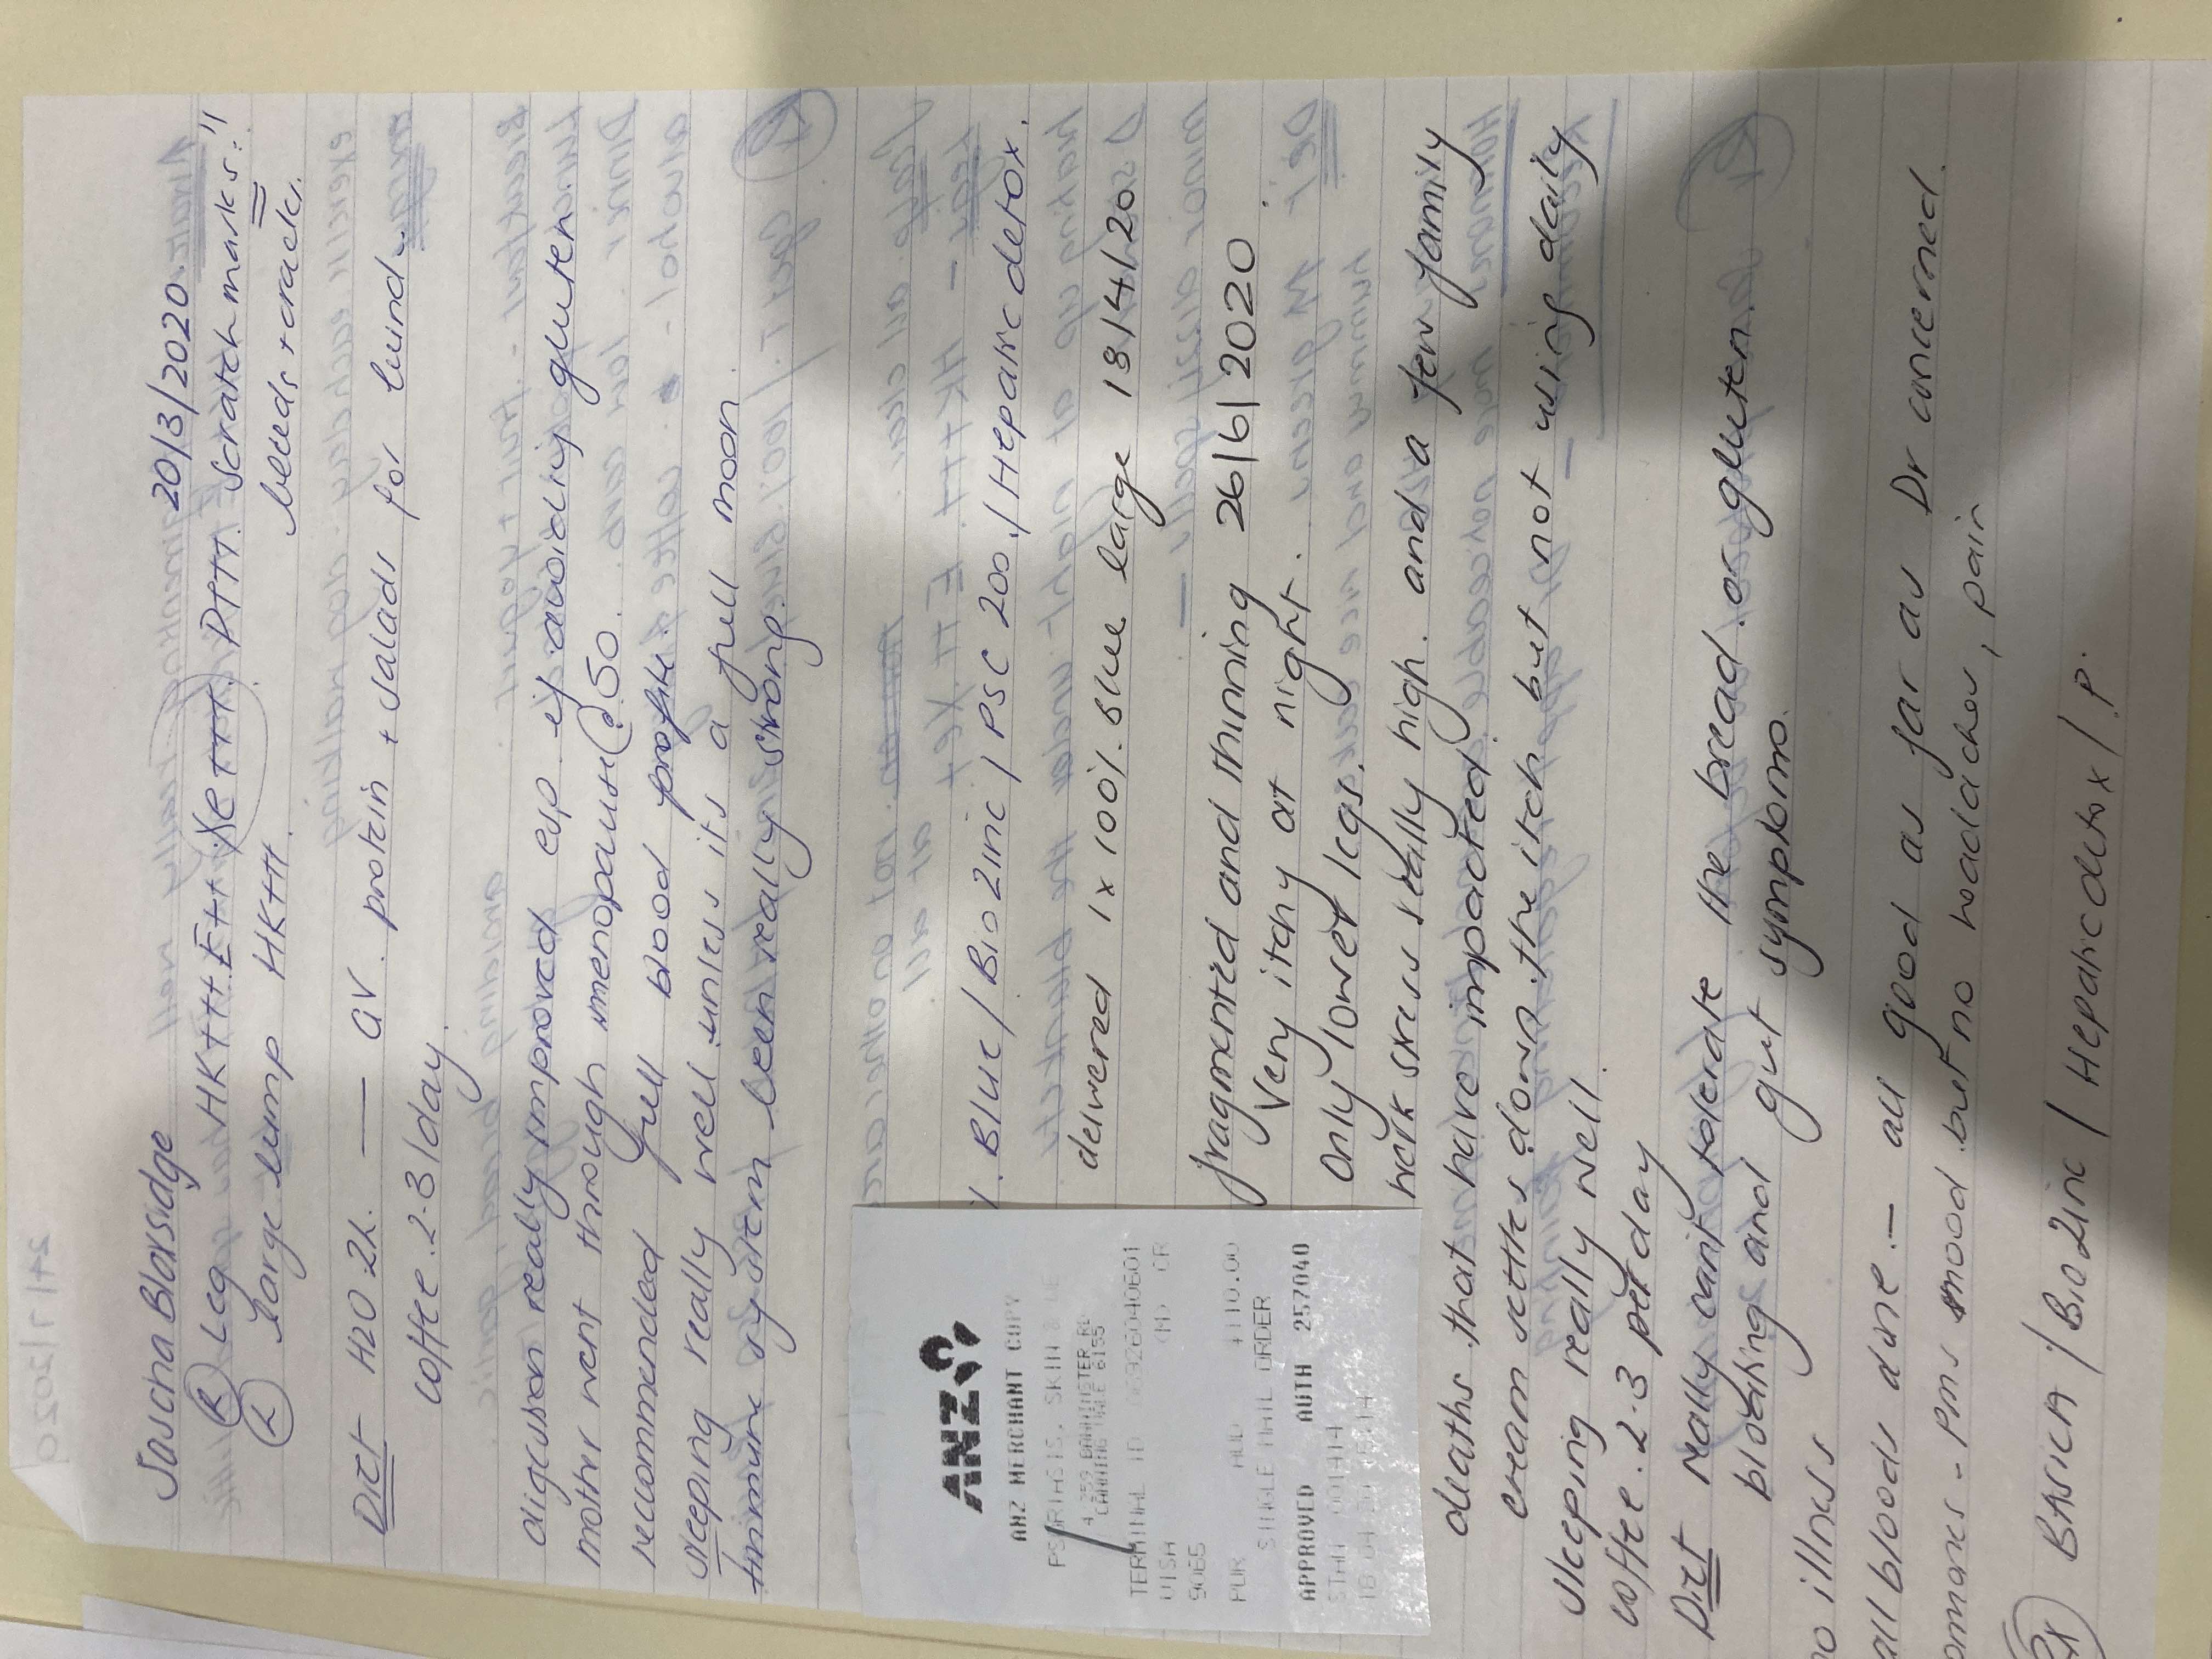 Sascha Blorsidge 20/3/2020.
(R) Leg HK+++ E++ Xe +++ P+++. Scratch marks!!
(L) Large lump HK+++. bleeds + cracks.
Diet H2O 2L. — GV. protein + salads for lunch.
coffee. 2-3/day.
digestion really improved esp if avoiding gluten
mother went through menopause @ 50.
reccommended full blood profile.
sleeping really well unless its a full moon
immune system been really strong.
Blue / Biozinc / PSC 200 / Hepatic detox.
delivered 1 x 100% Blue large 18/4/20.
fragmented and thinning 26/6/2020
Very itchy at night.
only lower legs.
work stress really high. and a few family
deaths that have impacted
cream settles down the itch but not using daily
sleeping really well.
coffee. 2-3 per day
Diet really can't tolerate the bread or gluten.
bloating and gut symptoms.
no illness
all bloods done. — all good as far as Dr concerned.
- pms mood but no headaches, pain
BASICA / Biozinc / Hepatic detox / P.
ANZ
ANZ MERCHANT COPY
PSORIASIS, SKIN &
4 259 BANNISTER RD
CANNING VALE 6155
TERMINAL ID
VISA (M) CR
9065
PUR AUD $110.00
SINGLE MAIL ORDER
APPROVED AUTH 257040